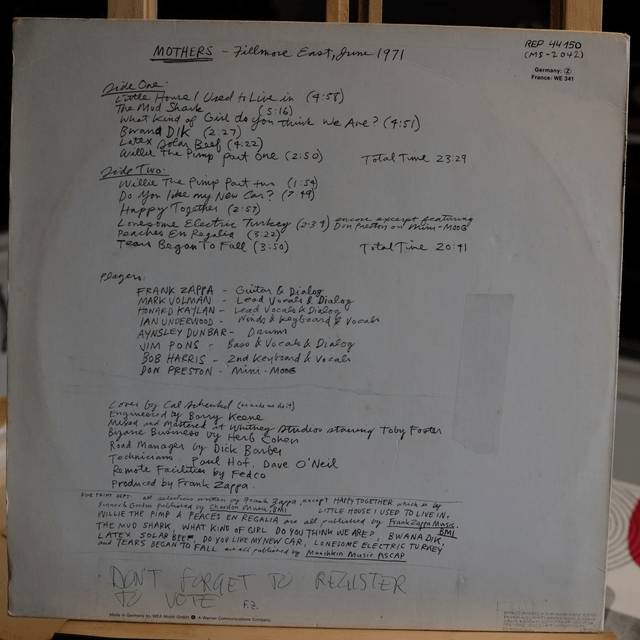 MOTHERS - Fillmore East, June 1971
REP 44150
(MS-2042)
Germany: Ⓩ
France: WE 341
Side One:
Little House I Used to Live in (4:58)
The Mud Shark (5:16)
What Kind of Girl do you think we Are? (4:51)
Bwana Dik (2:27)
Latex Solar Beef (4:22)
Willie The Pimp Part One (2:50) Total Time 23:29
Side Two:
Willie The Pimp Part two (1:54)
Do You like my New Car? (7:49)
Happy Together (2:57)
Lonesome Electric Turkey (2:39) encore excerpt featuring
Don Preston on Mini-MOOG
Peaches En Regalia (3:22)
Tears Began To Fall (3:50) Total Time 20:41
Players:
FRANK ZAPPA - Guitar & Dialog
MARK VOLMAN - Lead Vocals & Dialog
HOWARD KAYLAN - Lead Vocals & Dialog
IAN UNDERWOOD - Winds & Keyboard & Vocals
AYNSLEY DUNBAR - Drums
JIM PONS - Bass & Vocals & Dialog
BOB HARRIS - 2nd Keyboard & Vocals
DON PRESTON - Mini-MOOG
Cover by Cal Schenkel
Engineered by Barry Keene
Mixed and Mastered at Whitney Studios starring Toby Foster
Bizarre Business by Herb Cohen
Road Manager by Dick Barber
Technicians Paul Hof, Dave O'Neil
Remote Facilities by Fedco
Produced by Frank Zappa
FINE PRINT DEPT: all selections written by Frank Zappa, except HAPPY TOGETHER which is by
published by Chardon Music, BMI LITTLE HOUSE I USED TO LIVE IN,
WILLIE THE PIMP & PEACES EN REGALIA are all published by Frank Zappa Music, BMI
THE MUD SHARK, WHAT KIND OF GIRL DO YOU THINK WE ARE?, BWANA DIK,
LATEX SOLAR BEEF, DO YOU LIKE MY NEW CAR, LONESOME ELECTRIC TURKEY
and TEARS BEGAN TO FALL are all published by Munchkin Music ASCAP
DON'T FORGET TO REGISTER
TO VOTE F.Z.
Made in Germany by WEA Musik GmbH A Warner Communications Company